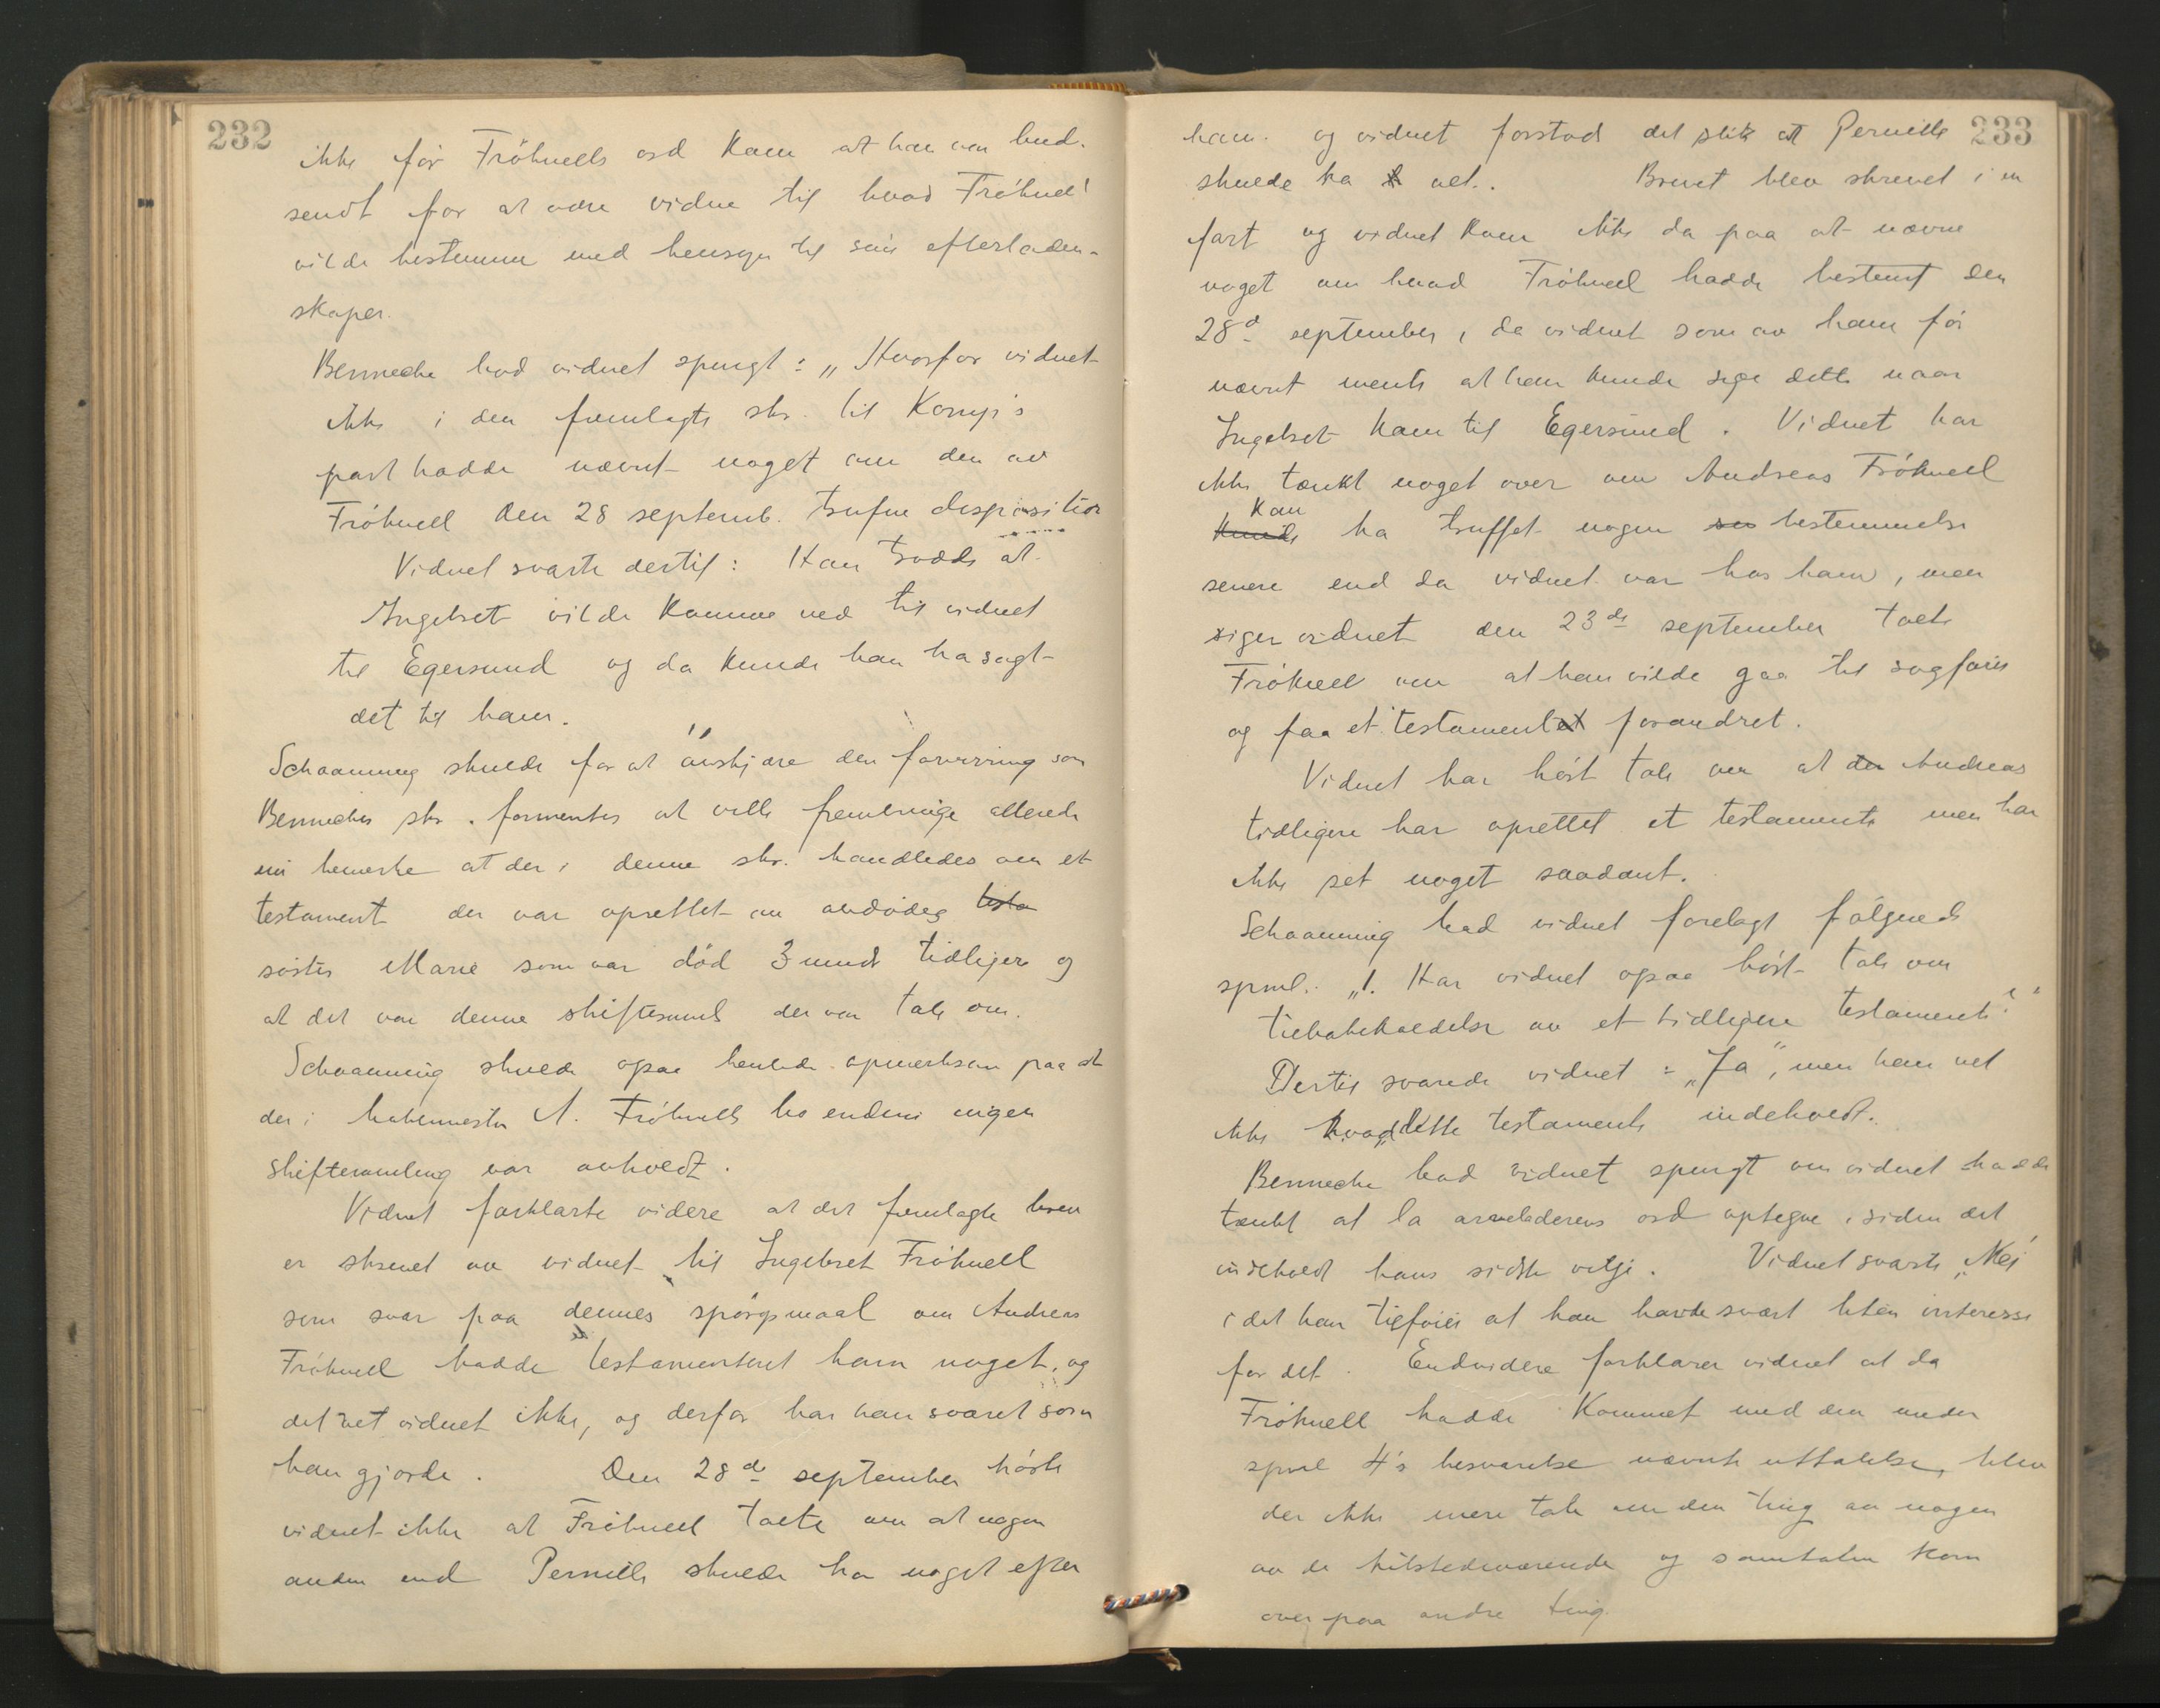 232
ikke før Fröhvells ord kom at han var bud-
sendt for at være vidne til hvad Fröhvell
vilde bestemme med hensyn til sine efterladen-
skaper.
Benneche bad vidnet spurgt: „Hvorfor vidnet
ikke i den fremlagte skr. til Komp's
part hadde nævnt noget om den av
Fröhvell den 28 septemb. trufne disposition
Vidnet svarte dertil: Han trodde at
Ingebret vilde komme ned til vidnet
til Egersund og da kunde han ha sagt
det til ham.
Schaanning skulde for at avskjære den forvirring som
Benneches skr. formentes at ville frembringe allerede
nu bemerke at der i denne skr. handledes om et
testament der var oprettet av avdødes testa
søster Marie som var død 3 mndr tidligere og
at det var denne skiftesaml. der var tale om.
Schaanning skulde ogsaa henlede opmerksom paa at
der i A. Fröhvells bo endnu ingen
skiftesamling var avholdt.
Vidnet forklarte videre at det fremlagte brev
er skrevet av vidnet til Ingebret Fröhvell
som svar paa dennes spørgsmaal om Andreas
Fröhvell hadde testamentert ham noget, og
det vet vidnet ikke, og derfor har han svaret som
han gjorde. Den 28de september hørte
vidnet ikke at Fröhvell talte om at nogen
anden end Pernille skulde ha noget efter
233
ham. og vidnet forstod det slik at Pernille
skulde ha alt. Brevet blev skrevet i en
fart og vidnet kom ikke da paa at nævne
noget om hvad Fröhvell hadde bestemt den
28d september, da vidnet som av ham før
nævnt mente at han kunde sige dette naar
Ingebret kom til Egersund. Vidnet har
ikke tænkt noget over om Andreas Fröhvell
kan
kunde ha truffet nogen bestemmelse
senere end da vidnet var hos ham, men
siger vidnet den 23de september talte
Fröhvell om at han vilde gaa til sagfører
og faa et testament forandret.
Vidnet har hørt tale om at der Andreas
tidligere har oprettet et testamente men har
ikke set noget saadant.
Schaanning bad vidnet forelagt følgende
spml. „1. Har vidnet ogsaa hørt tale om
tilbakekaldelse av et tidligere testamente?"
Dertil svarede vidnet: „Ja", men han vet
ikke hvad dette testamente indeholdt.
Benneche bad vidnet spurgt om vidnet hadde
tænkt at la arveladerens ord optegne, siden det
indeholdt hans sidste vilje. Vidnet svarte „Nei"
idet han tilføier at han havde svært liten interesse
for det. Endvidere forklarer vidnet at da
Fröhvell hadde kommet med den under
spml 4's besvarelse nævnte uttalelse, blev
der ikke mere tale om den ting av nogen
av de tilstedeværende og samtalen kom
over paa andre ting.